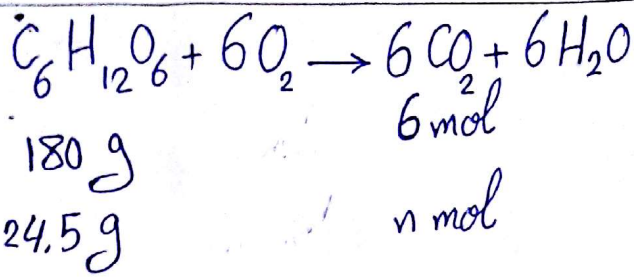 C₆H₁₂O₆ + 6O₂ → 6CO₂ + 6H₂O
180 g 6 mol
24.5 g n mol